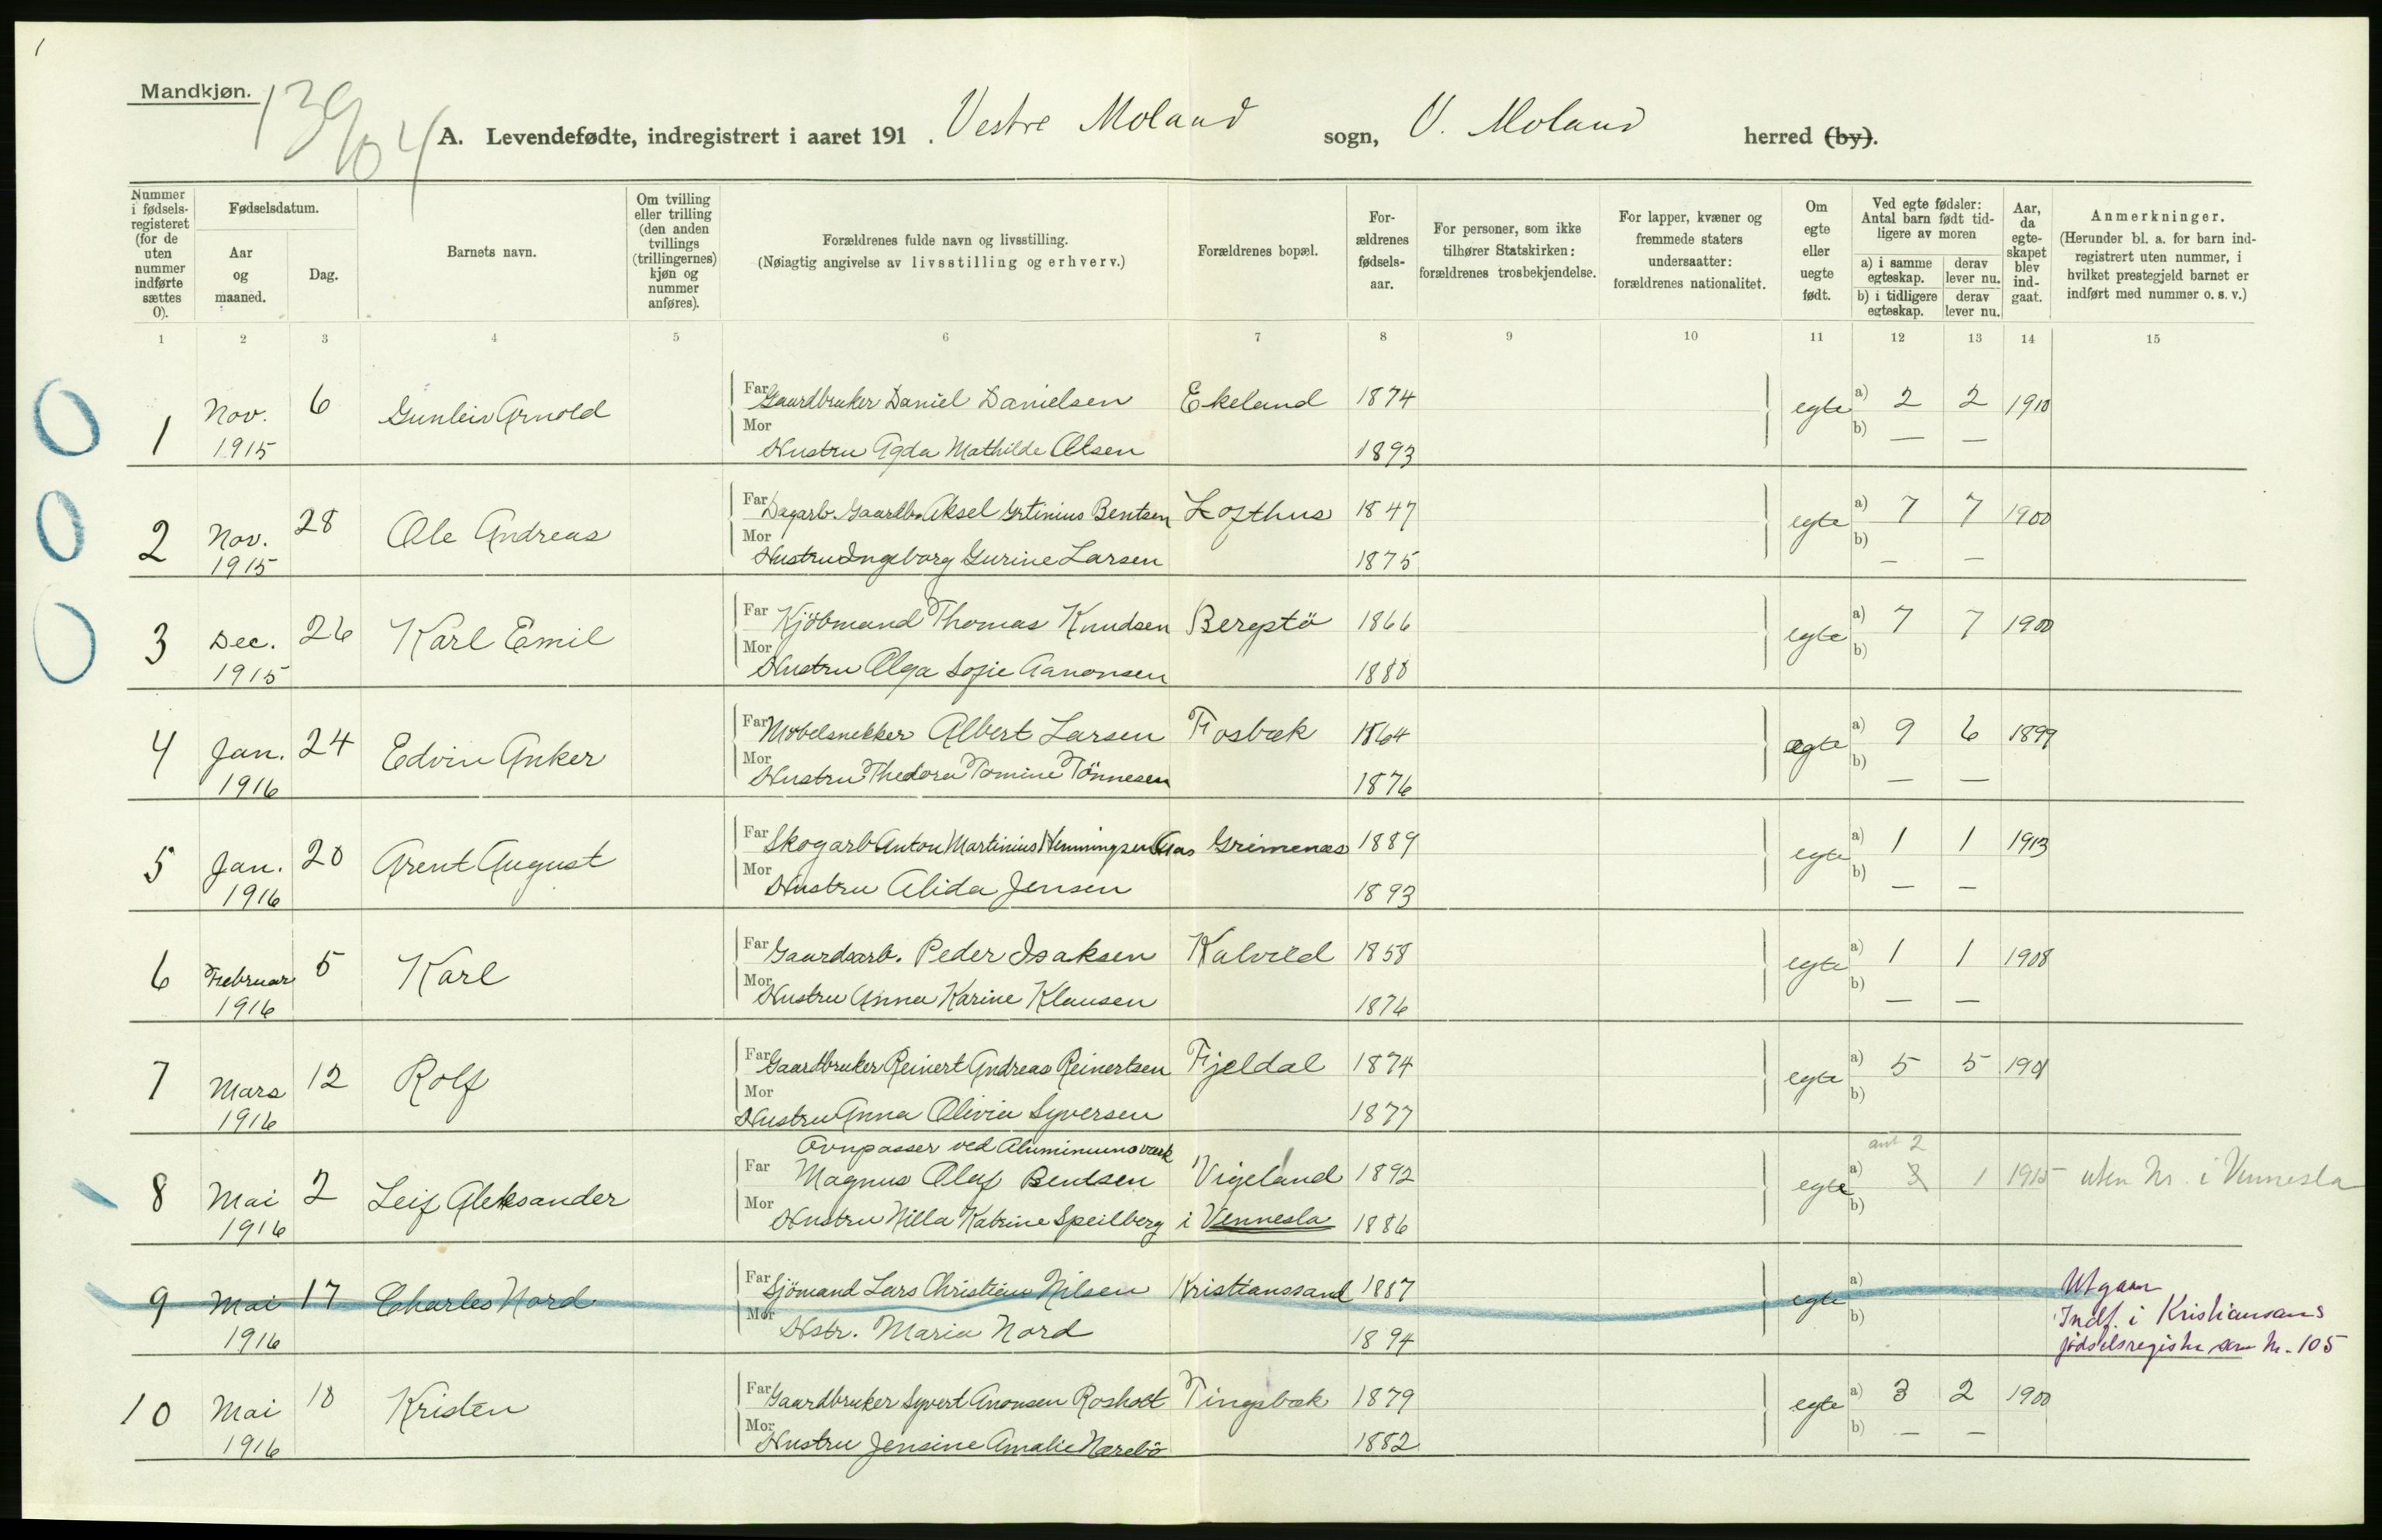 1
Mandkjøn.
139/04
A. Levendefødte, indregistrert i aaret 191 . Vestre Moland sogn, V. Moland herred (by).
Nummer i fødsels-registeret (for de uten nummer indførte sættes 0).
Fødselsdatum.
Aar og maaned.
Dag.
Barnets navn.
Om tvilling eller trilling (den anden tvillings (trillingernes) kjøn og nummer anføres).
Forældrenes fulde navn og livsstilling.
(Nøiagtig angivelse av livsstilling og erhverv.)
Forældrenes bopæl.
For-ældrenes fødsels-aar.
For personer, som ikke tilhører Statskirken: forældrenes trosbekjendelse.
For lapper, kvæner og fremmede staters undersaatter: forældrenes nationalitet.
Om egte eller uegte født.
Ved egte fødsler: Antal barn født tid-ligere av moren
a) i samme egteskap.
derav lever nu.
b) i tidligere egteskap.
derav lever nu.
Aar, da egte-skapet blev ind-gaat.
Anmerkninger.
(Herunder bl. a. for barn ind-registrert uten nummer, i hvilket prestegjeld barnet er indført med nummer o. s. v.)
1 2 3 4 5 6 7 8 9 10 11 12 13 14 15
0 1 Nov. 6 Gunleiv Arnold Far Gaardbruker Daniel Danielsen Ekeland 1874 egte a) 2 2 1910
1915 Mor Hustru Agda Mathilde Olsen 1893 b) — —
0 2 Nov. 28 Ole Andreas Far Dagarb. Gaardbr. Aksel Bentsen Lofthus 1847 egte a) 7 7 1900
1915 Mor Hustru Ingeborg Gurine Larsen 1875 b) — —
0 3 Dec. 26 Karl Emil Far Kjöbmand Thomas Knudsen Bergstö 1866 egte a) 7 7 1900
1915 Mor Hustru Olga Sofie Aanonsen 1880 b)
4 Jan. 24 Edvin Anker Far Möbelsnekker Albert Larsen Fosbæk 1864 ægte a) 9 6 1899
1916 Mor Hustru Thedora Tomine Tönnesen 1876 b) — —
5 Jan. 20 Arent August Far Skogarb Anton Martinius Henningsen Aas Grimenæs 1889 egte a) 1 1 1913
1916 Mor Hustru Alida Jensen 1893 b) — —
6 Februar 5 Karl Far Gaardsarb. Peder Isaksen Kalvild 1858 egte a) 1 1 1908
1916 Mor Hustru Anna Karine Klausen 1876 b) — —
7 Mars 12 Rolf Far Gaardbruker Reinert Andreas Reinertsen Fjeldal 1874 egte a) 5 5 1901
1916 Mor Hustru Anna Olivia Syversen 1877 b)
Ovnpasser ved Aluminiumsværk ant 2
8 Mai 2 Leif Aleksander Far Magnus Olaf Bentsen Vigeland 1892 egte a) 3 1 1915 uten Nr. i Vennesla
1916 Mor Hustru Nilla Katrine Speilberg i Vennesla 1886 b)
9 Mai 17 Charles Nord Far Sjömand Lars Christian Nilsen Kristianssand 1887 egte a) Utgaar
1916 Mor Hstr. Maria Nord 1894 b) Indf. i Kristiansans
födselsregister som Nr. 105
10 Mai 18 Kristen Far Gaardbruker Syvert Anonsen Rosholt Tingsbæk 1879 egte a) 3 2 1900
1916 Mor Hustru Jensine Amalie Nærebö 1882 b) — —